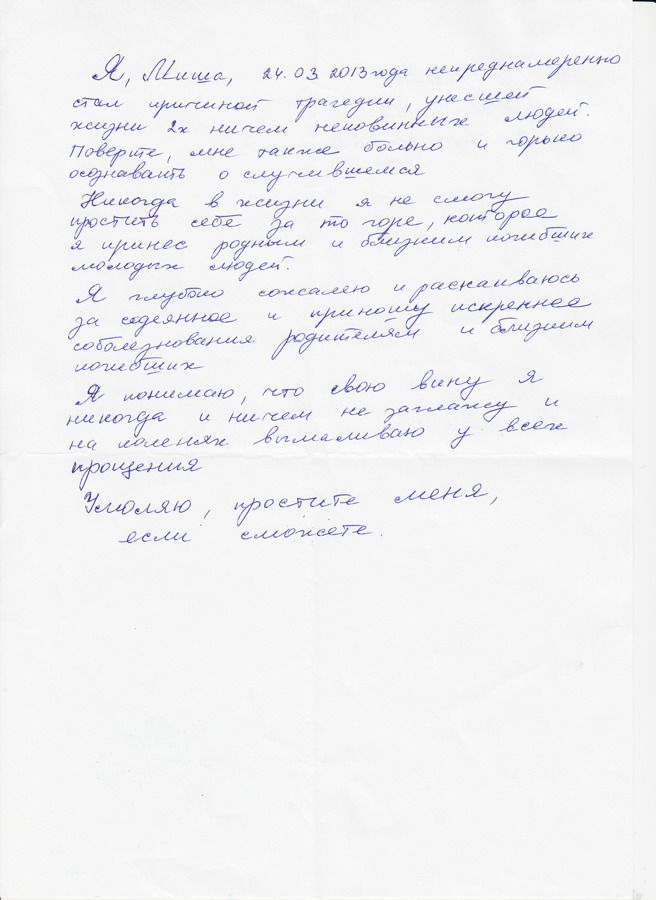 Я, Миша, 24.03.2013 года непреднамеренно
стал причиной трагедии, унесшей
жизни 2х ничем неповинных людей.
Поверте, мне также больно и горько
осознавать о случившемся
Никогда в жизни я не смогу
простить себе за то горе, которое
я принес родным и близким погибших
молодых людей.
Я глубоко сожалею и раскаиваюсь
за содеянное и приношу искреннее
соболезнования родителям и близким
погибших
Я понимаю, что свою вину я
никогда и ничем не заглажу и
на коленях вымаливаю у всех
прощения
Умоляю, простите меня,
если сможете.